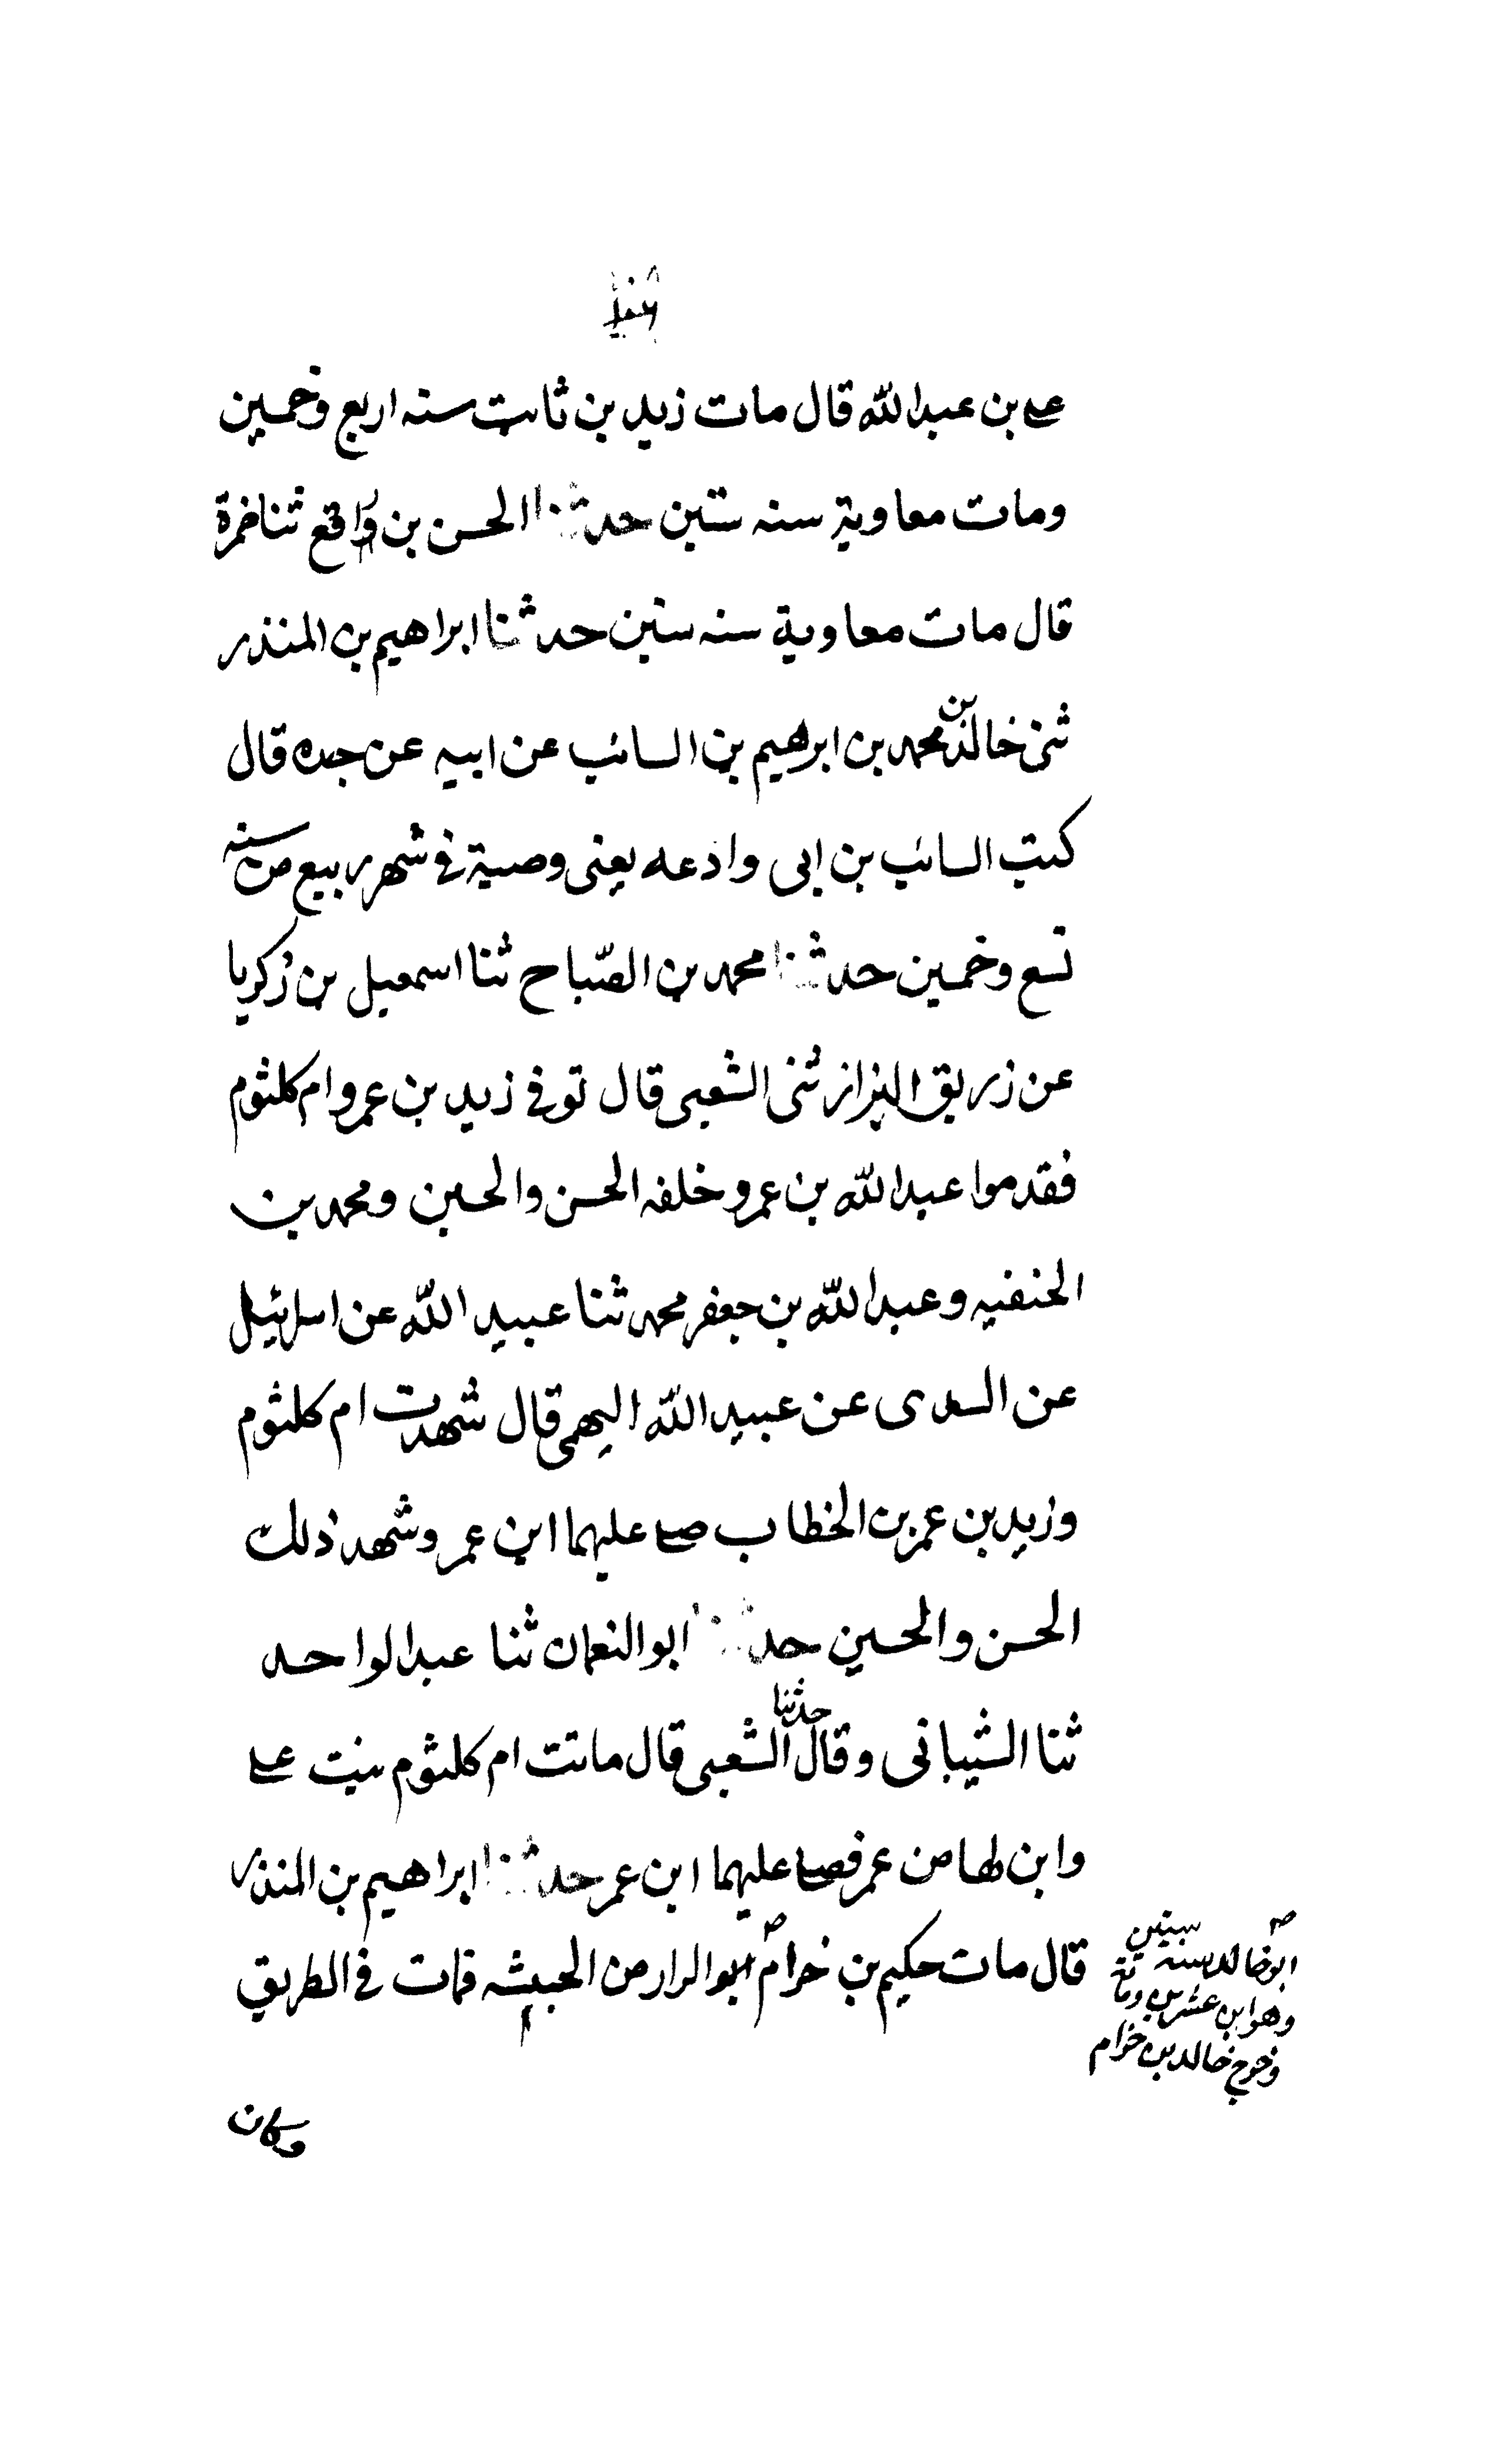 على بن عبد الله قال مات زيد بن ثابت سنه اربع وخمسين
ومات معاوية سنه ستين حدثنا الحسن بن واقع ثنا ضمرة
قال مات معاوية سنه ستين حدثنا ابراهيم بن المنذر
ثنى خالد بن محمد بن ابرهيم بن السائب عن ابيه عن جده قال
كتب السائب بن ابى وادعه يعنى وصية فى شهر ربيع من سنه
تسع وخمسين حدثنا محمد بن الصّباح ثنا اسمعيل بن زكريا
عن زريق البزاز ثنى الشعبى قال توفى زيد بن عمر وام كلثوم
فقدموا عبد الله بن عمر وخلفه الحسن والحسين ومحمد بن
الحنفيه وعبد الله بن جعفر محمد ثنا عبيد الله عن اسرائيل
عن السدى عن عبيد الله البهى قال شهدت ام كلثوم
وزيد بن عمر بن الخطاب صلى عليهما ابن عمر وشهد ذلك
الحسن والحسين حدثنا ابو النعمان ثنا عبد الواحد
ثنا الشيبانى وقال حدثنا الشعبى قال ماتت ام كلثوم بنت على
وابن لها من عمر فصلى عليهما ابن عمر حدثنا ابراهيم بن المنذر
قال مات حكيم بن حزام من الحبشه فمات فى الطريق
ابو خالد سنه ستين
وهو ابن عشرين ومائة
وخرج خالد بن حزام
وكان